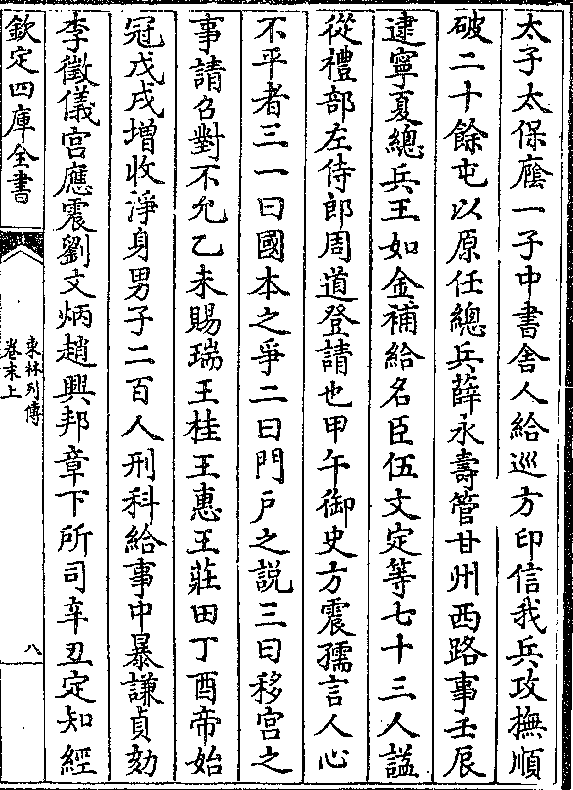 太子太保廕一子中書舍人給巡方印信我兵攻撫順
破二十餘屯以原任總兵薛永壽管甘州西路事壬辰
逮寧夏總兵王如金補給名臣伍文定等七十三人諡
從禮部左侍郎周道登請也甲午御史方震孺言人心
不平者三一曰國本之爭二曰門戶之説三曰移宮之
事請召對不允乙未賜瑞王桂王惠王莊田丁酉帝始
冠戊戌增收淨身男子二百人刑科給事中暴謙貞劾
李徵儀宮應震劉文炳趙興邦章下所司辛丑定知經
欽定四庫全書
東林列傳
卷末上
八